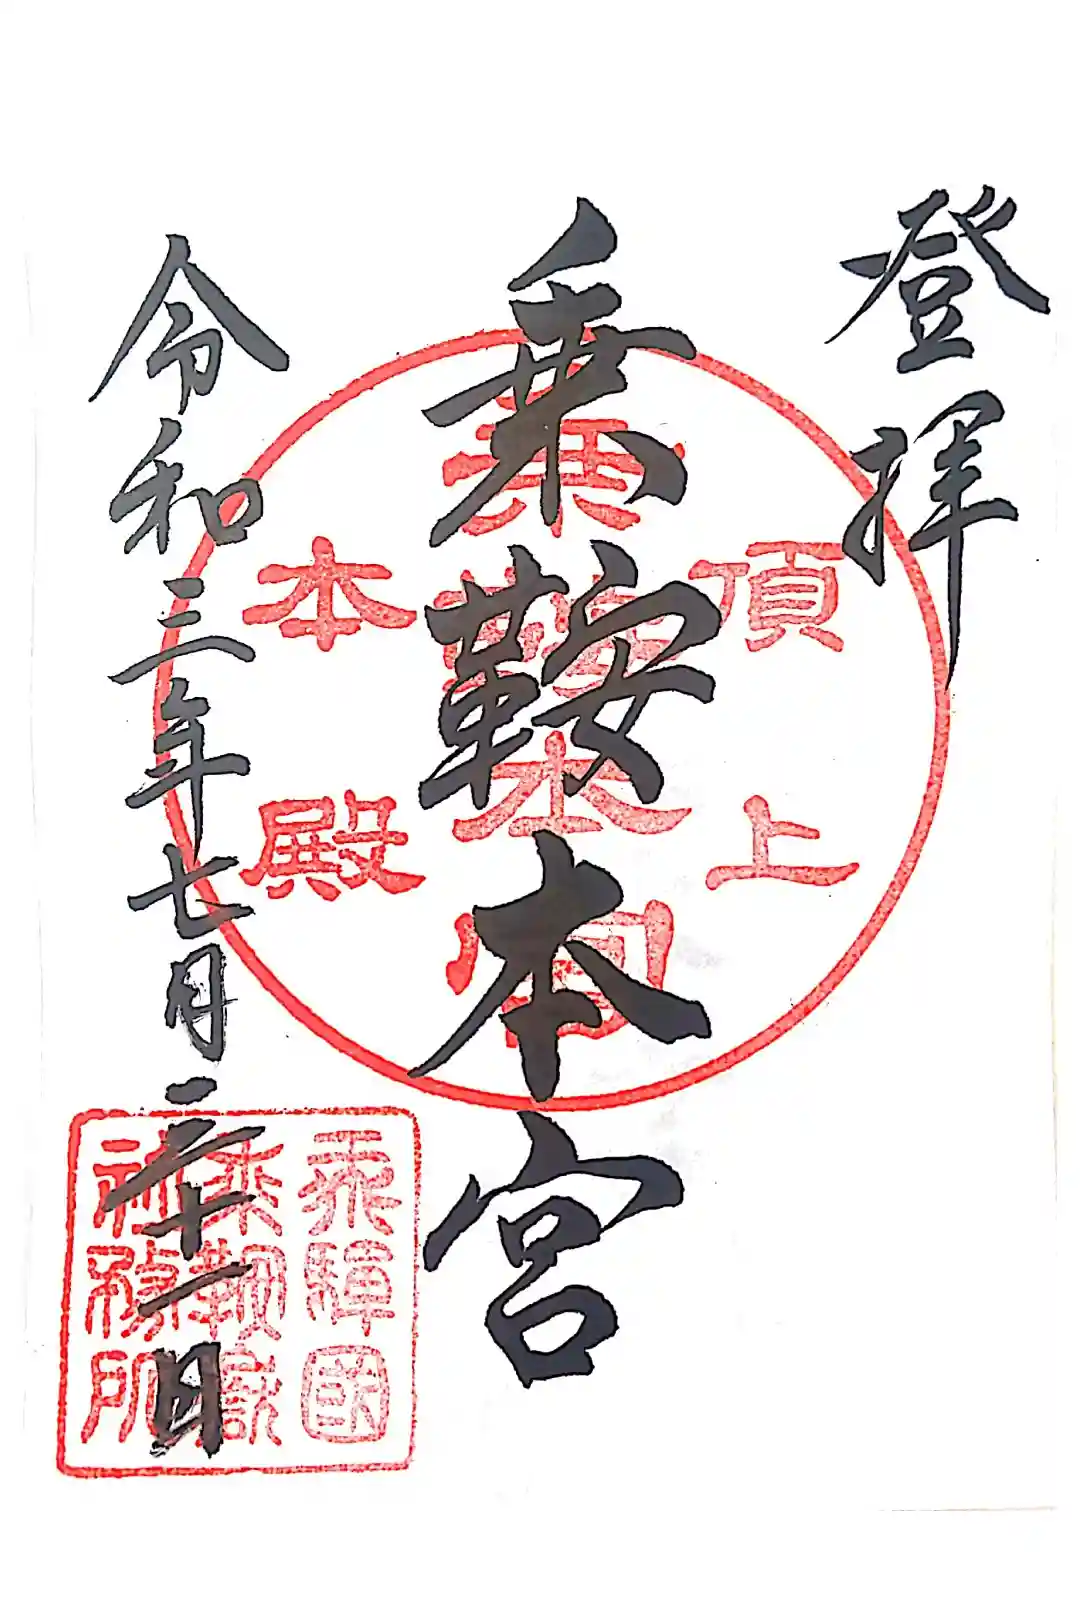 登拝
頂上
乗鞍本宮
乗鞍本宮
本殿
令和三年七月三十一日
飛驒國
乗鞍嶽
社務所